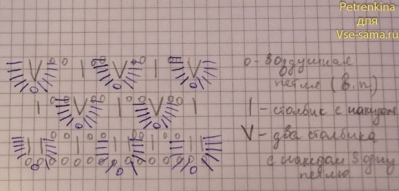 Petrenkina
для
Vse-sama.ru
о - воздушная
петля (в.п.)
| - столбик с накидом
V - два столбика
с накидом в одну
петлю